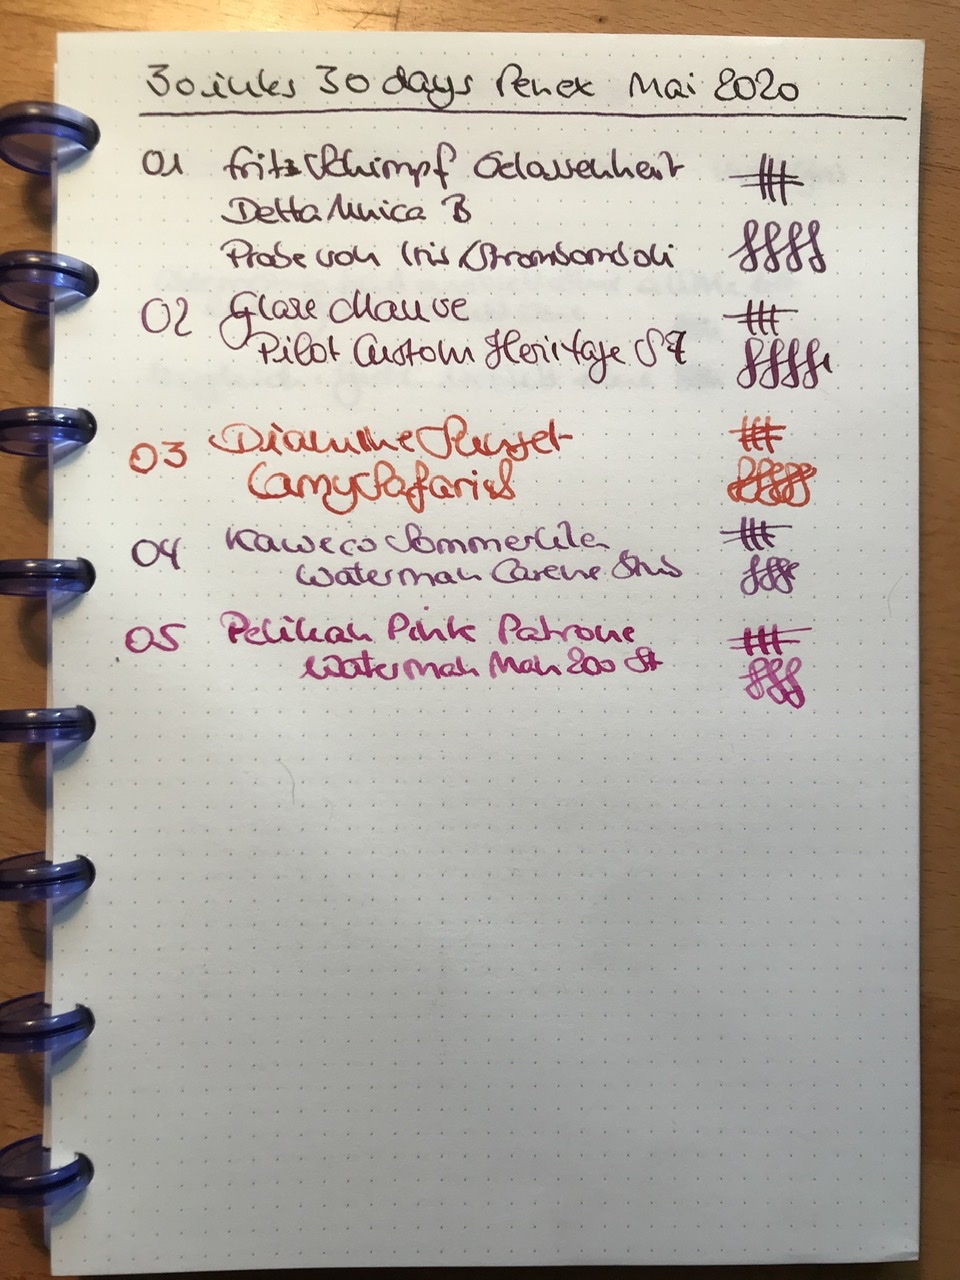 30 inks 30 days Penex Mai 2020
01 Fritz Schimpf Gelassenheit
Delta Unica B
Probe von Iris/Strombomboli
02 Glaze Mauve
Pilot Custom Heritage
03 Diamine Sunset
Lamy Safari
04 Kaweco Sommerlila
Waterman Carene
05 Pelikan Pink Patrone
Waterman Man 200